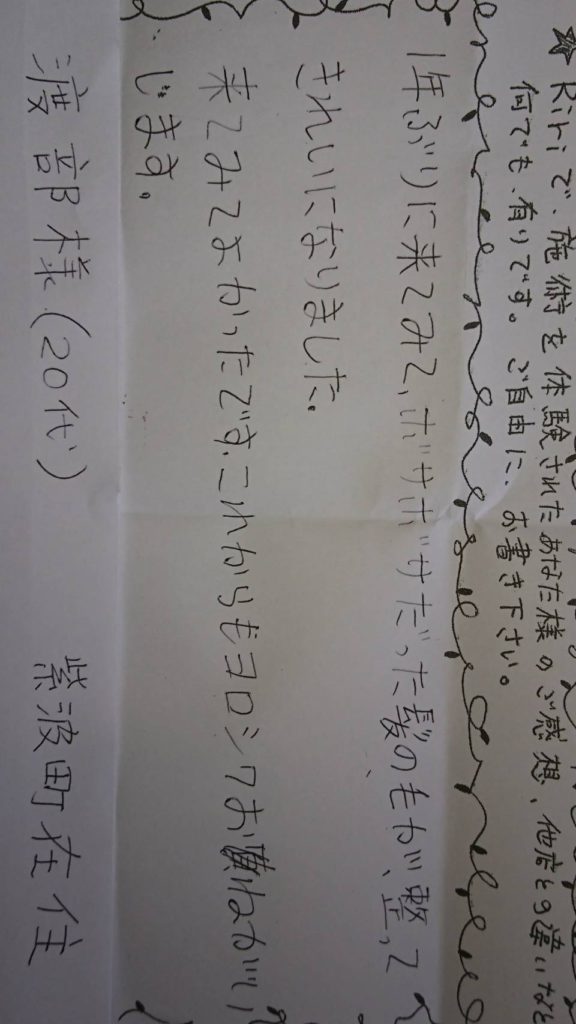 ★ Ririで、施術を体験されたあなた様のご感想、他店との違いなど
何でも、有りです。ご自由に、お書き下さい。
1年ぶりに来てみて、ボサボサだった髪の毛が、整って
きれいになりました.
来てみてよかったです.これからもヨロシクおねがい
じます。
渡部様(20代) 紫波町在住